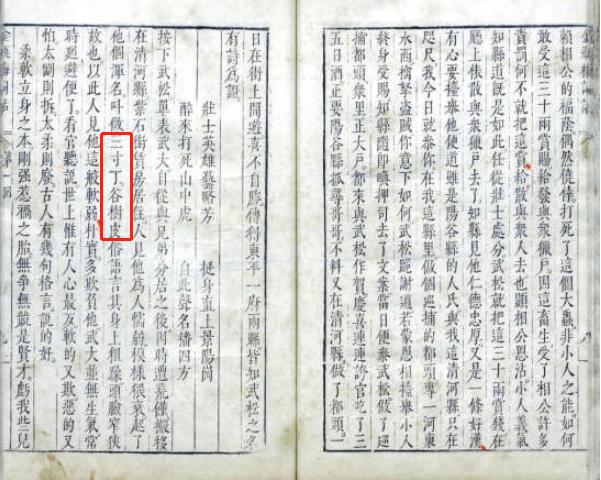 賴相公的福蔭偶然僥倖打死了這個大蟲非小人之能如何
敢受這三十兩賞賜給發與衆獵戶因這畜生受了相公許多
責罰何不就把這賞給散與衆人去也顯相公恩沾小人義氣
知縣道既是如此任從壯士處分武松就把這三十兩賞錢在
廳上俵散與衆獵戶去了知縣見他仁德忠厚又是一條好漢
有心要擡舉他便道雖是陽谷縣的人民與我這清河縣只在
咫尺我今日就參你在我這縣里做個巡捕的都頭專一河東
水西擒拏盜賊你意下如何武松跪謝道若蒙恩相擡舉小人
終身受賜知縣隨即喚押司立了文案當日便參武松做了巡
捕都頭衆里正大戶都來與武松作賀慶喜連連誇官吃了三
五日酒正要陽谷縣抓尋哥哥不料又在清河縣做了都頭一
日在街上閒遊喜不自勝傳得東平一府兩縣皆知武松之名
有詩為證
壯士英雄藝略芳 挺身直上景陽岡
醉來打死山中虎 自此聲名播四方
按下武松單表武大自從與兄弟分居之後因時遭荒饉搬移
在清河縣紫石街賃房居住人見他為人懦弱模樣猥衰起了
他個渾名叫做三寸丁谷樹皮俗語言其身上粗躁頭臉窄狹
故也以此人見他這般軟弱朴實多欺負他武大並無生氣常
時廻避便了看官聽說世上惟有人心最歹軟的又欺惡的又
怕太剛則折太柔則廢古人有幾句格言說的好
柔軟立身之本剛强惹禍之胎無爭無競是賢才虧我些兒